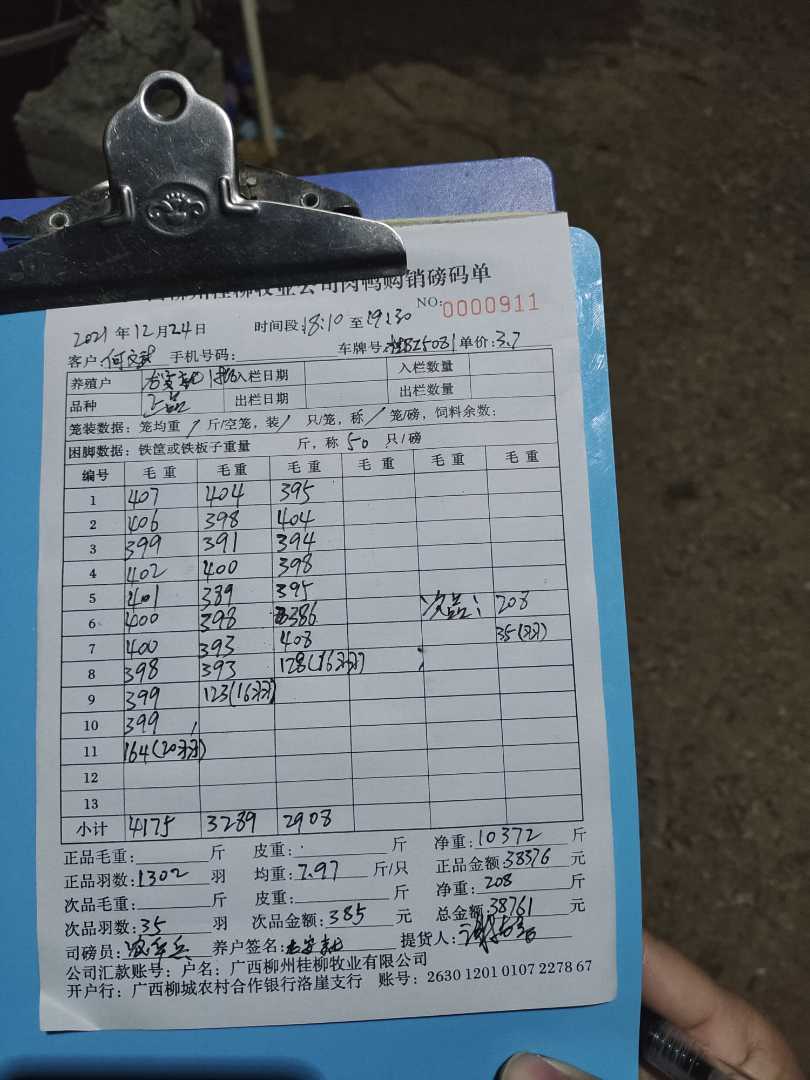 柳州桂柳牧业公司肉鸭购销磅码单
NO: 0000911
2021年12月24日 时间段:18:10至19:30
客户: 手机号码: 车牌号: 单价:3.7
养殖户 入栏日期 入栏数量
品种 正品 出栏日期 出栏数量
笼装数据:笼均重/斤/空笼,装/只/笼,称/笼/磅,饲料余数:
困脚数据:铁筐或铁板子重量 斤,称50只/磅
编号 毛重 毛重 毛重 毛重 毛重 毛重
1 407 404 395
2 406 398 404
3 399 391 394
4 402 400 398
5 401 389 395
6 400 398 386 次品: 208
7 400 393 408 35(羽)
8 398 393 128(16羽)
9 399 123(16羽)
10 399
11 164(20羽)
12
13
小计 4175 3289 2908
正品毛重: 斤 皮重: 斤 净重:10372斤
正品羽数:1302羽 均重:7.97斤/只 正品金额:38376元
次品毛重: 斤 皮重: 斤 净重:208斤
次品羽数:35羽 次品金额:385元 总金额:38761元
司磅员: 养户签名: 提货人:
公司汇款账号:户名:广西柳州桂柳牧业有限公司
开户行:广西柳城农村合作银行洛崖支行 账号:2630 1201 0107 2278 67